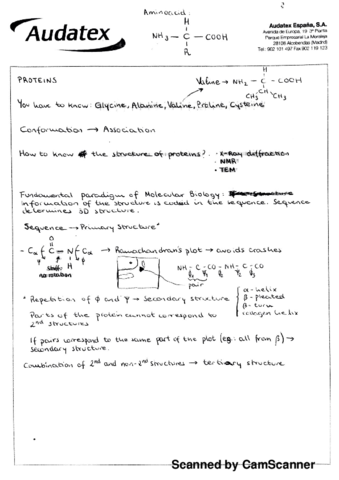 Aminoacid:
H
NH₃ - C - COOH
R
Audatex
Audatex España, S.A.
Avenida de Europa, 19 3ª Planta
Parque Empresarial La Moraleja
28108 Alcobendas (Madrid)
PROTEINS
Valine → NH₂ - C - COOH
H
CH
CH₃ CH₃
You have to know: Glycine, Alanine, Valine, Proline, Cysteine
Conformation → Association
How to know the structure of proteins?
· X-Ray diffraction
· NMR
· TEM
Fundamental paradigm of Molecular Biology:
information of the structure is coded in the sequence. Sequence
determines 3D structure.
Sequence → Primary structure*
- Cα - C - N - Cα → Ramachandran's plot → avoids crashes
O
H
no rotation
NH - C - CO - NH - C - CO
pair
* Repetition of φ and ψ → Secondary structure
α-helix
β-pleated
β-turn
collagen helix
Parts of the protein cannot correspond to
2nd structures
If pairs correspond to the same part of the plot (eg: all from β) →
secondary structure.
Combination of 2nd and non-2nd structures → tertiary structure
Scanned by CamScanner